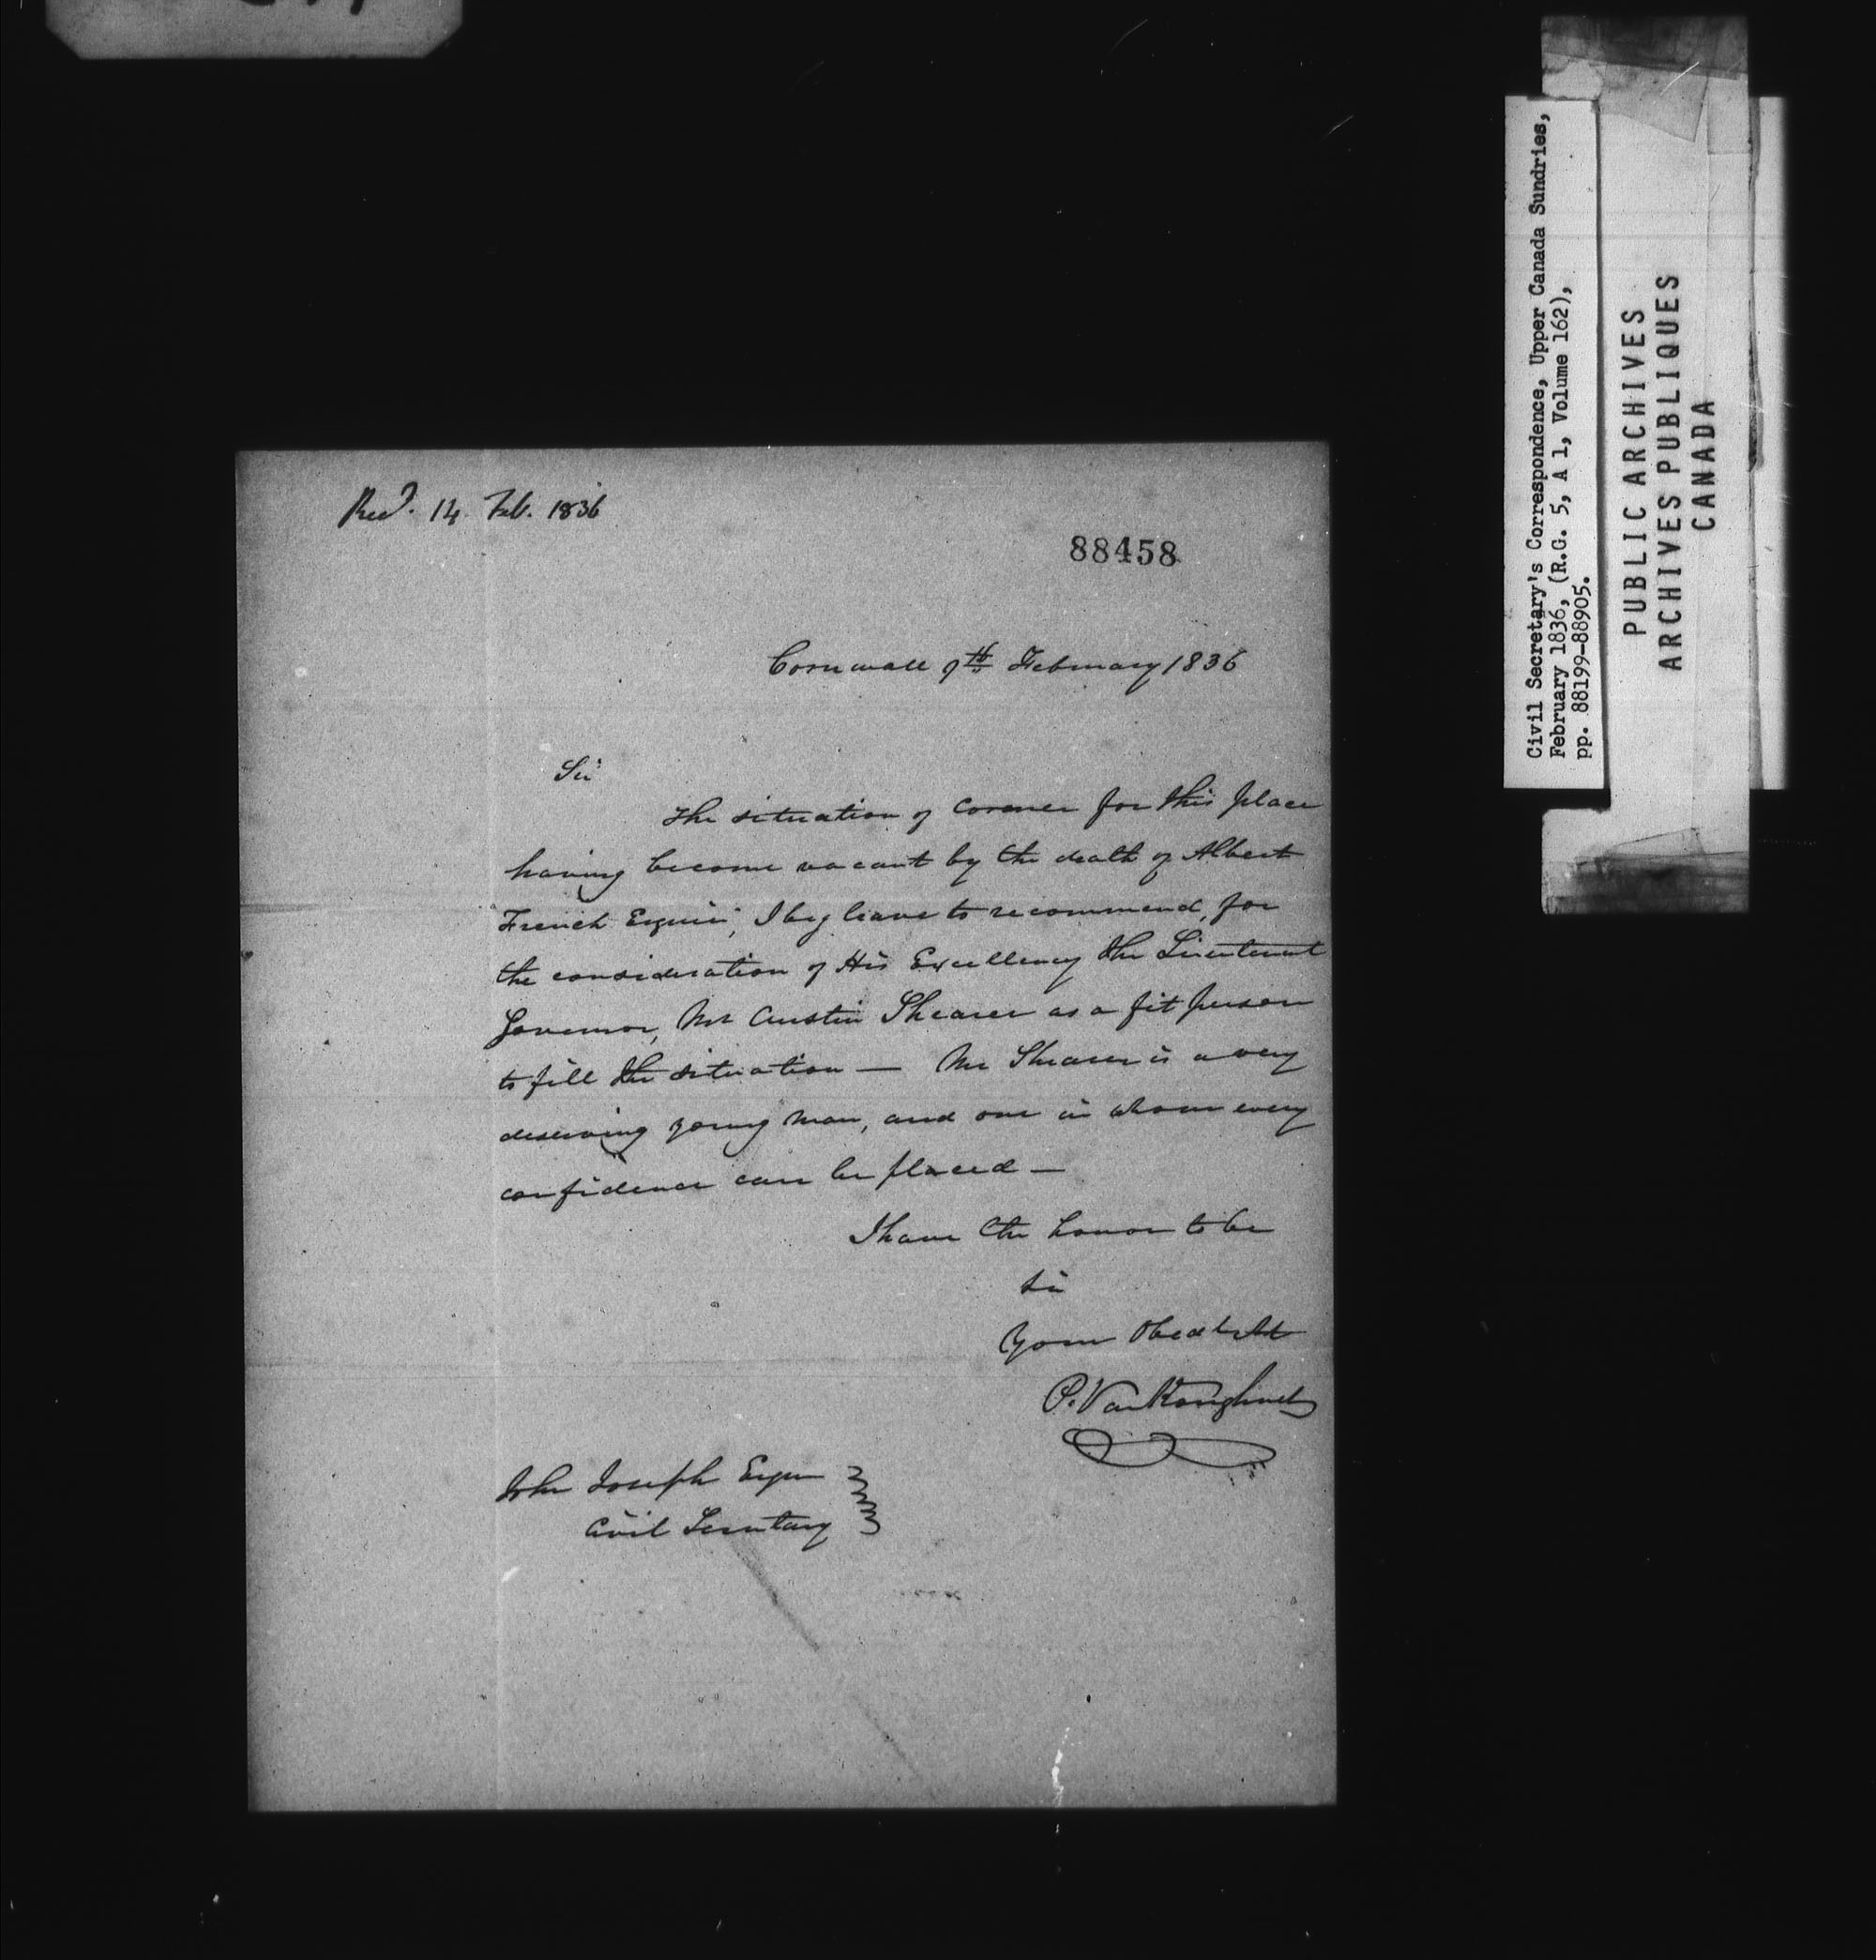 Recd. 14 Feb. 1836
88458
Cornwall 9th February 1836
Sir
The situation of Coroner for this place
having become vacant by the death of Albert
French Esquire, I beg leave to recommend, for
the consideration of His Excellency the Lieutenant
Governor, Mr Austin Shearer as a fit person
to fill the situation — Mr Shearer is a very
deserving young man, and one in whom every
confidence can be placed —
I have the honor to be
Sir
Your Obedt St
P. VanKoughnet
John Joseph Esqr
Civil Secretary
Civil Secretary's Correspondence, Upper Canada Sundries,
February 1836, (R.G. 5, A 1, Volume 162),
pp. 88199-88905.
PUBLIC ARCHIVES
ARCHIVES PUBLIQUES
CANADA